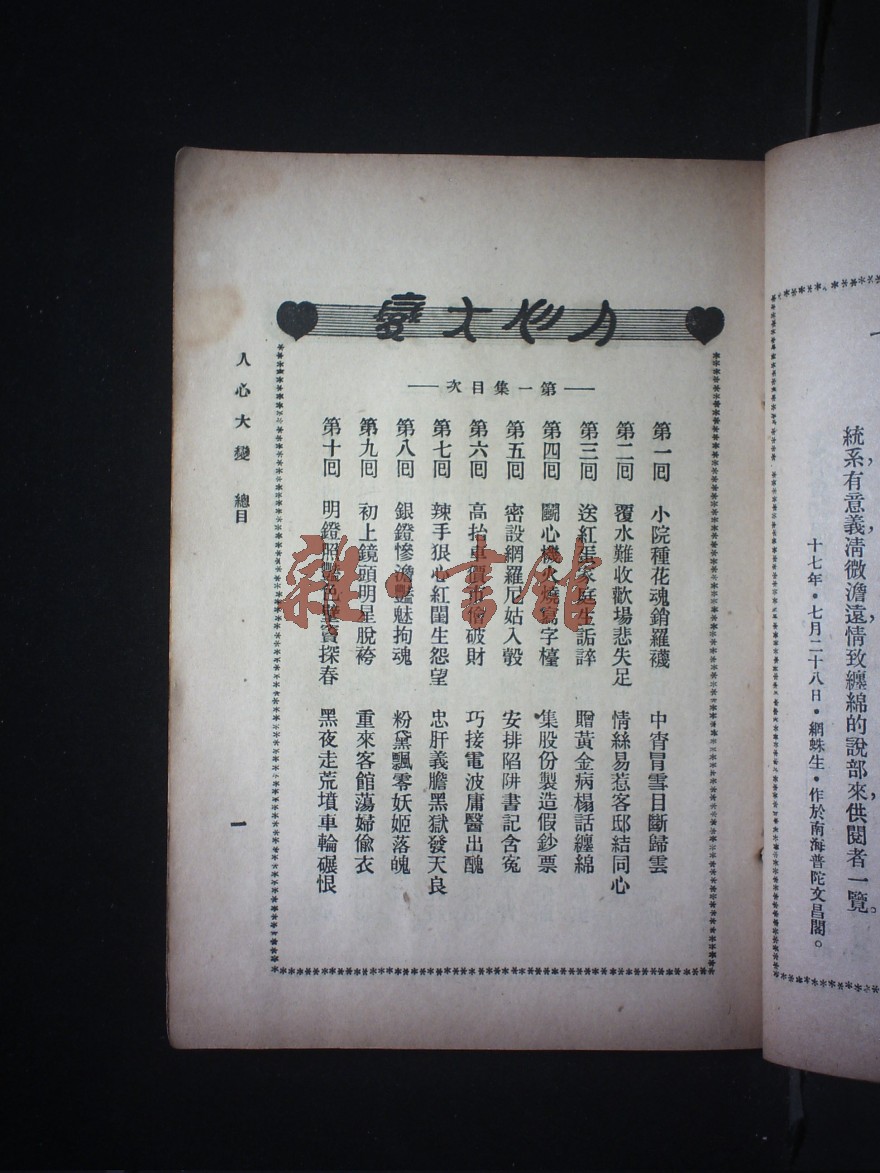 統系有意義淸微澹遠，情致纏綿的說部，來供閱者一覽。
十七年・七月二十八日・網蛛生・作於南海普陀文昌閣。
人心大變
第一集目次
第一回 小院種花魂銷羅襪 中宵冒雪目斷歸雲
第二回 覆水難收歡場悲失足 情絲易惹客邸結同心
第三回 送紅蛋家庭生詬誶 贈黃金病榻話纏綿
第四回 鬭心機火燒寫字檯 集股份製造假鈔票
第五回 密設網羅尼姑入彀 安排陷阱書記含寃
第六回 高抬車價市儈破財 巧接電波庸醫出醜
第七回 辣手狠心紅閨生怨望 忠肝義膽黑獄發天良
第八回 銀鐙慘澹豔魅拘魂 粉黛飄零妖姬落魄
第九回 初上鏡頭明星脫袴 重來客館蕩婦偸衣
第十回 明鐙照豔色 探春 黑夜走荒墳車輪碾恨
人心大變 總目
一
雜·書館